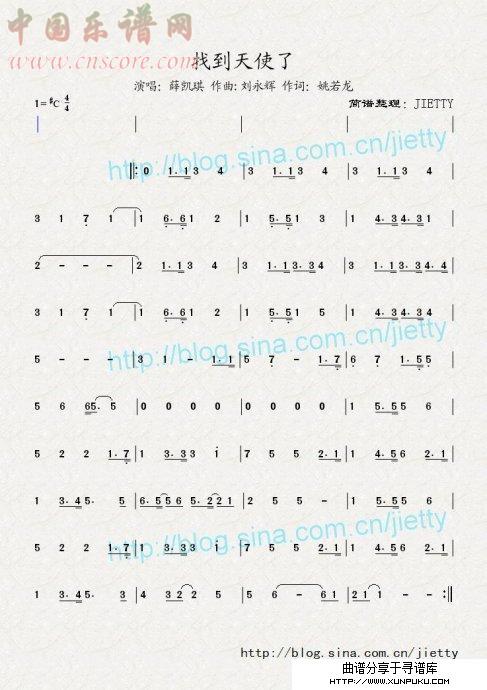 中国乐谱网
www.cnscore.com
找到天使了
演唱：薛凯琪 作曲：刘永辉 作词：姚若龙
1=♯C 4/4 简谱整理：JIETTY
http://blog.sina.com.cn/jietty
‖: 0 1.1 3 4 | 1.1 3 4 | 1.1 3 4 |
3 1 7 1 | 1 6.6 1 2 | 1 5.5 1 3 | 1 4.3 4.3 1 |
2 - - - | 2 1.1 3 4 | 1.1 3 4 | 1.1 3 4.3 3.4.4 |
http://blog.sina.com.cn/jietty
3 1 7 1 | 1 6.6 1 2 | 1 5.5 1 3 | 1 4.3 4.3 4 |
5 - - - | 3 1 - 1.1 | 5 7 - 1.7 | 6 7 1.5 5 |
5 6 65.5 | 0 0 0 0 | 0 0 0 0 | 1 5.5 5 6 |
5 2 2 1.7 | 1 3.3 3 i | 7 5 5 2.1 | 1 4.5 6 2.1 |
1 3.4 5. 5 | 6.5 5 6 5.2 2 1 | 2 5 5 - | 1 5.5 5 6 |
http://blog.sina.com.cn/jietty
5 2 2 1.7 | 1 3.3 3 i | 7 5 5 2.1 | 1 4.5 6 2.1 |
1 3.4 5. 3 | 4 3 2 2 5 | 5 - 6 1 | 2 1 1 - - :‖
http://blog.sina.com.cn/jietty
曲谱分享于寻谱库
WWW.XUNPUKU.COM